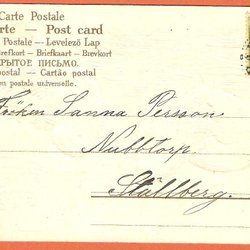 Carte Postale
rte — Post card
Postale — Levelező Lap
refkort — Briefkaart — Brevkort
KPЫTOE ПИСЬМО.
postal — Cartão postal
on postale universelle.
Fröken Sanna Persson
Nubbtorp.
Ställberg.